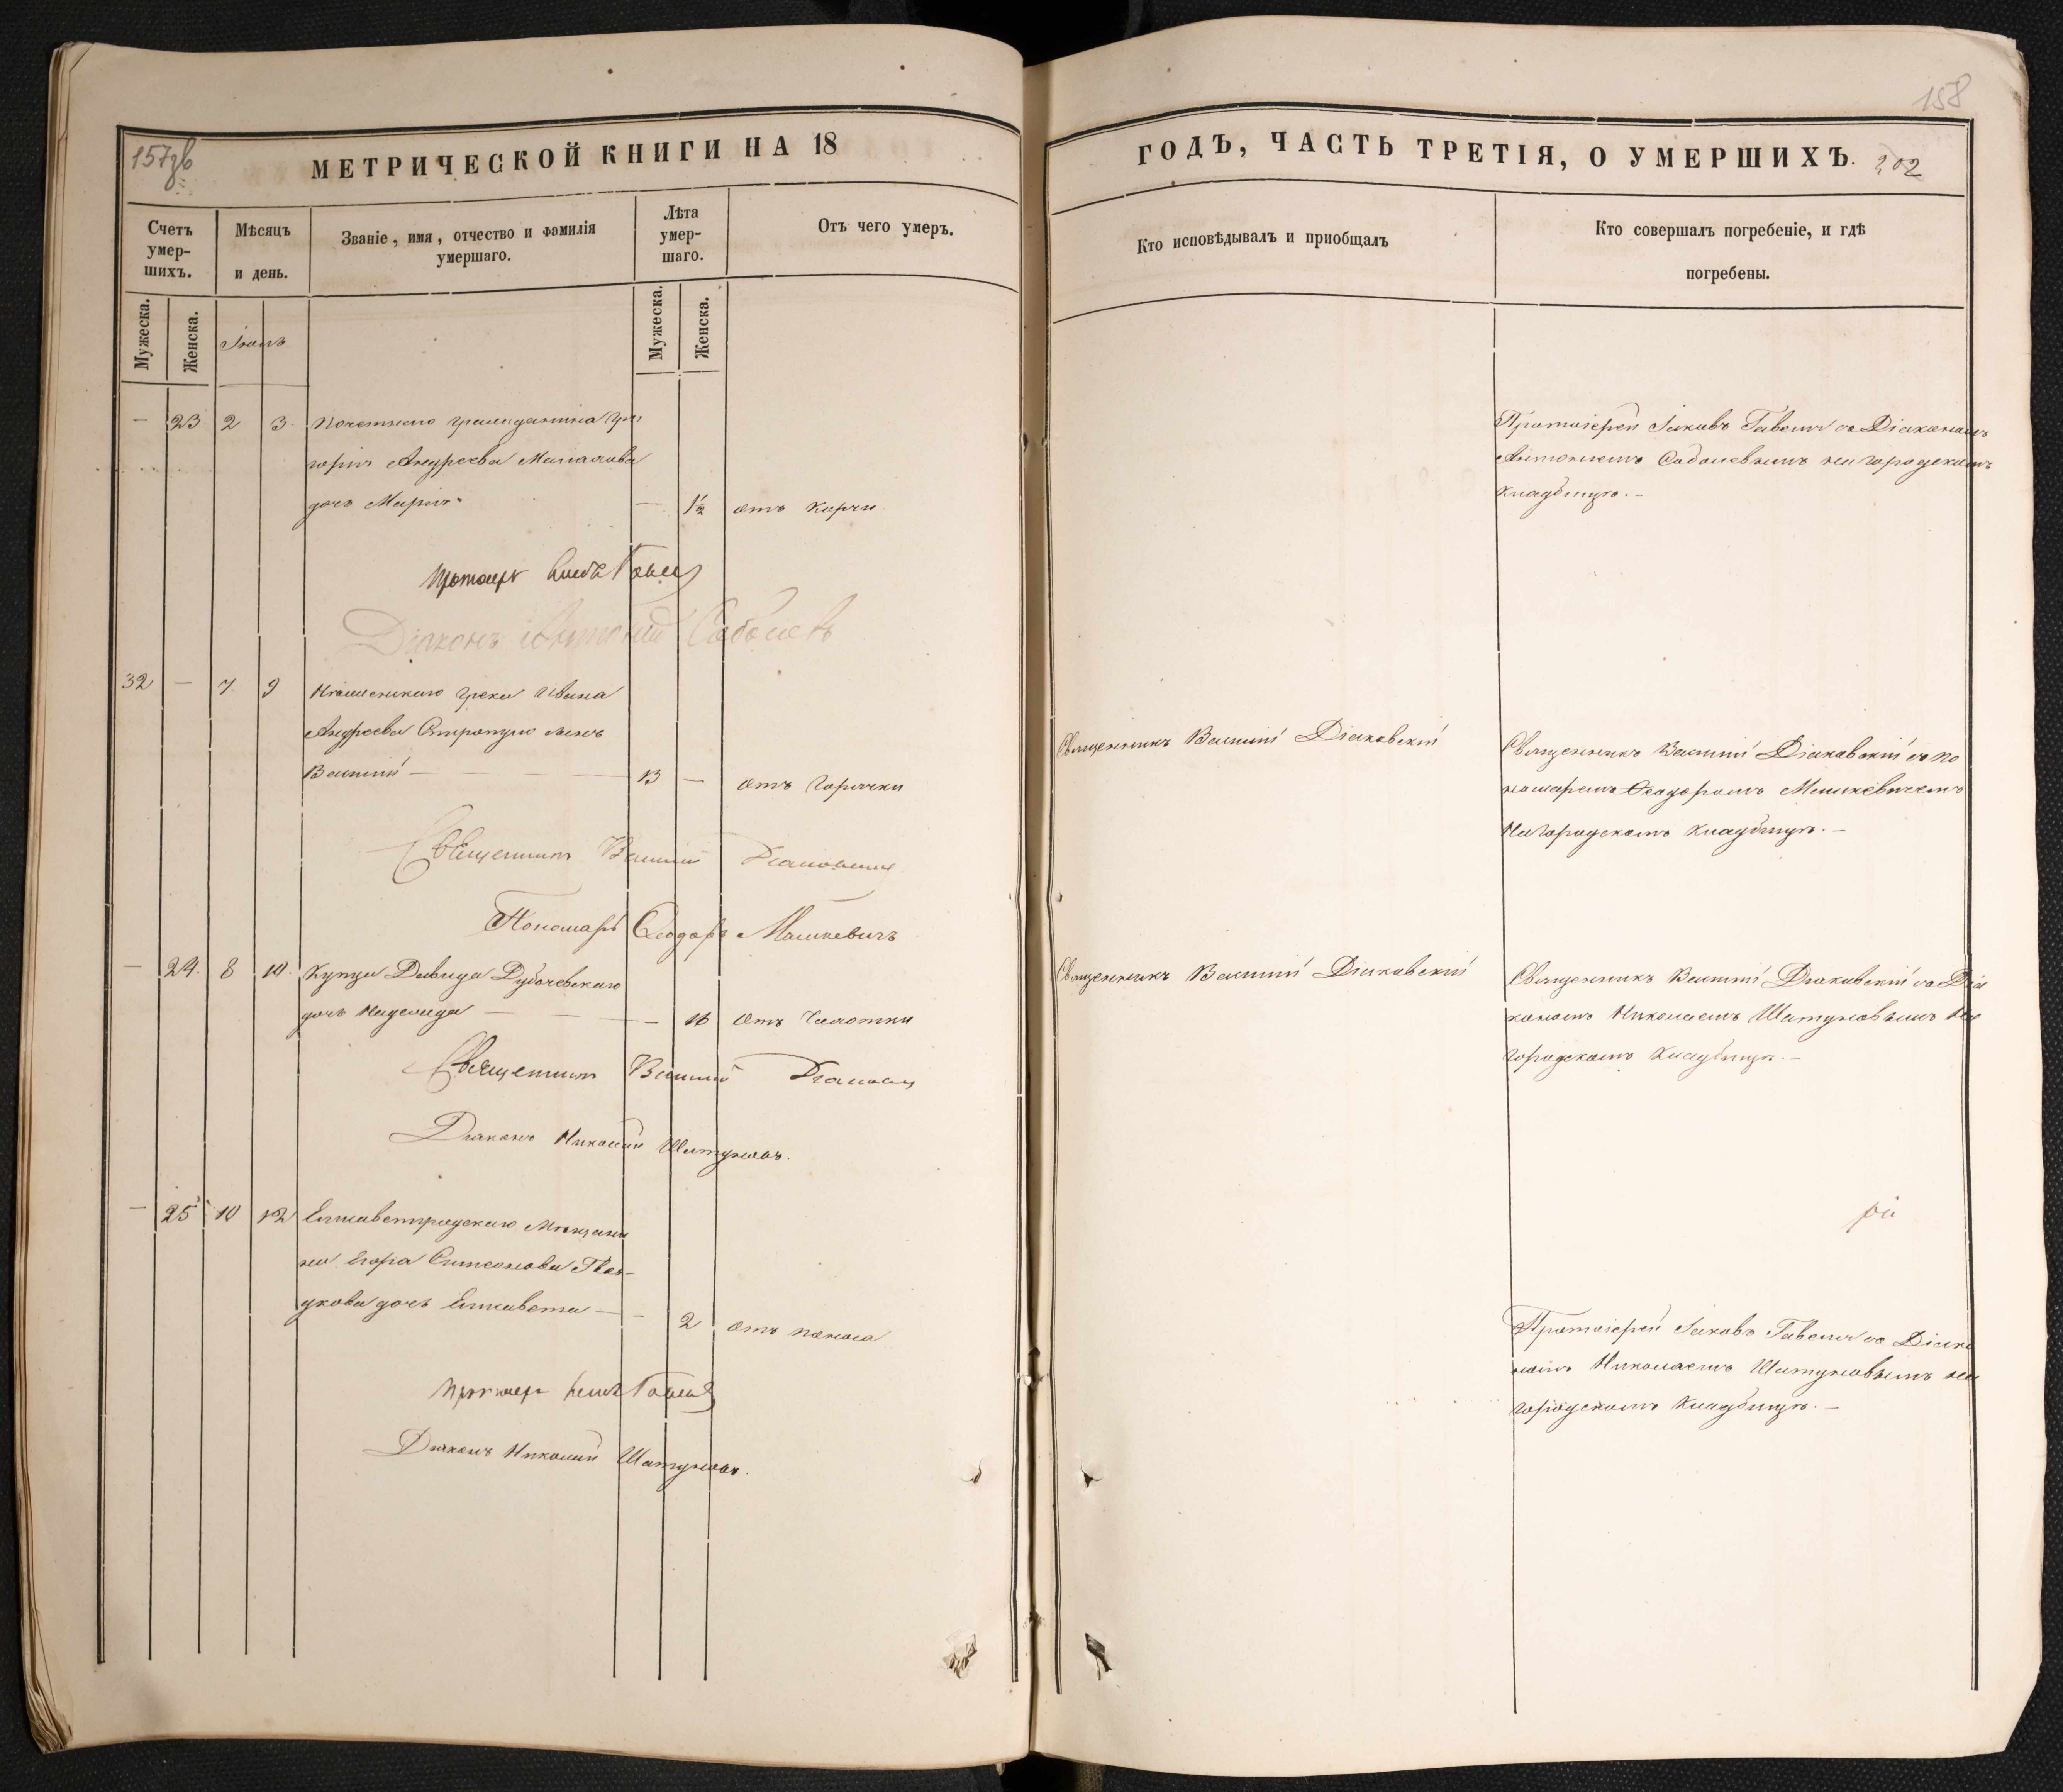 157зв
МЕТРИЧЕСКОЙ КНИГИ НА 18
Счетъ умер-шихъ.
Мѣсяцъ и день.
Званіе, имя, отчество и фамилія умершаго.
Лѣта умер-шаго.
Отъ чего умеръ.
Мужеска.
Женска.
Мужеска.
Женска.
— 23 2 3 Почетнаго гражданина Гри
горія Андреева
дочь Марія — 1½ отъ корчи
Діаконъ Антоній Соболевъ
32 — 7 9 Нѣжинскаго грека Ивана
Андреева сынъ
Василій — 13 — отъ горячки
Священникъ Василій Діаковскій
Пономарь Ѳеодоръ Машкевичъ
— 24. 8 10. Купца Давида
дочь Надежда — — 16 отъ чахотки
Священникъ Василій
Діаконъ Николай Шатуновъ.
— 25 10 12 Елисаветградскаго Мѣщани
на Егора Симеонова
дочь Елисавета — — 2 отъ поноса
Діаконъ Николай Шатуновъ.
158
ГОДЪ, ЧАСТЬ ТРЕТІЯ, О УМЕРШИХЪ. 202
Кто исповѣдывалъ и пріобщалъ
Кто совершалъ погребеніе, и гдѣ
погребены.
Протоіерей Іаковъ съ Діакономъ
Антоніемъ Соболевымъ на городскомъ
кладбищѣ. –
Священникъ Василій Діаковскій
Священникъ Василій Діаковскій съ по
номаремъ Ѳеодоромъ Машкевичемъ
на городскомъ кладбищѣ. –
Священникъ Василій Діаковскій
Священникъ Василій Діаковскій съ Діа
кономъ Николаемъ Шатуновымъ на
городскомъ кладбищѣ. –
Протоіерей Іаковъ съ Діако
номъ Николаемъ Шатуновымъ на
городскомъ кладбищѣ. –